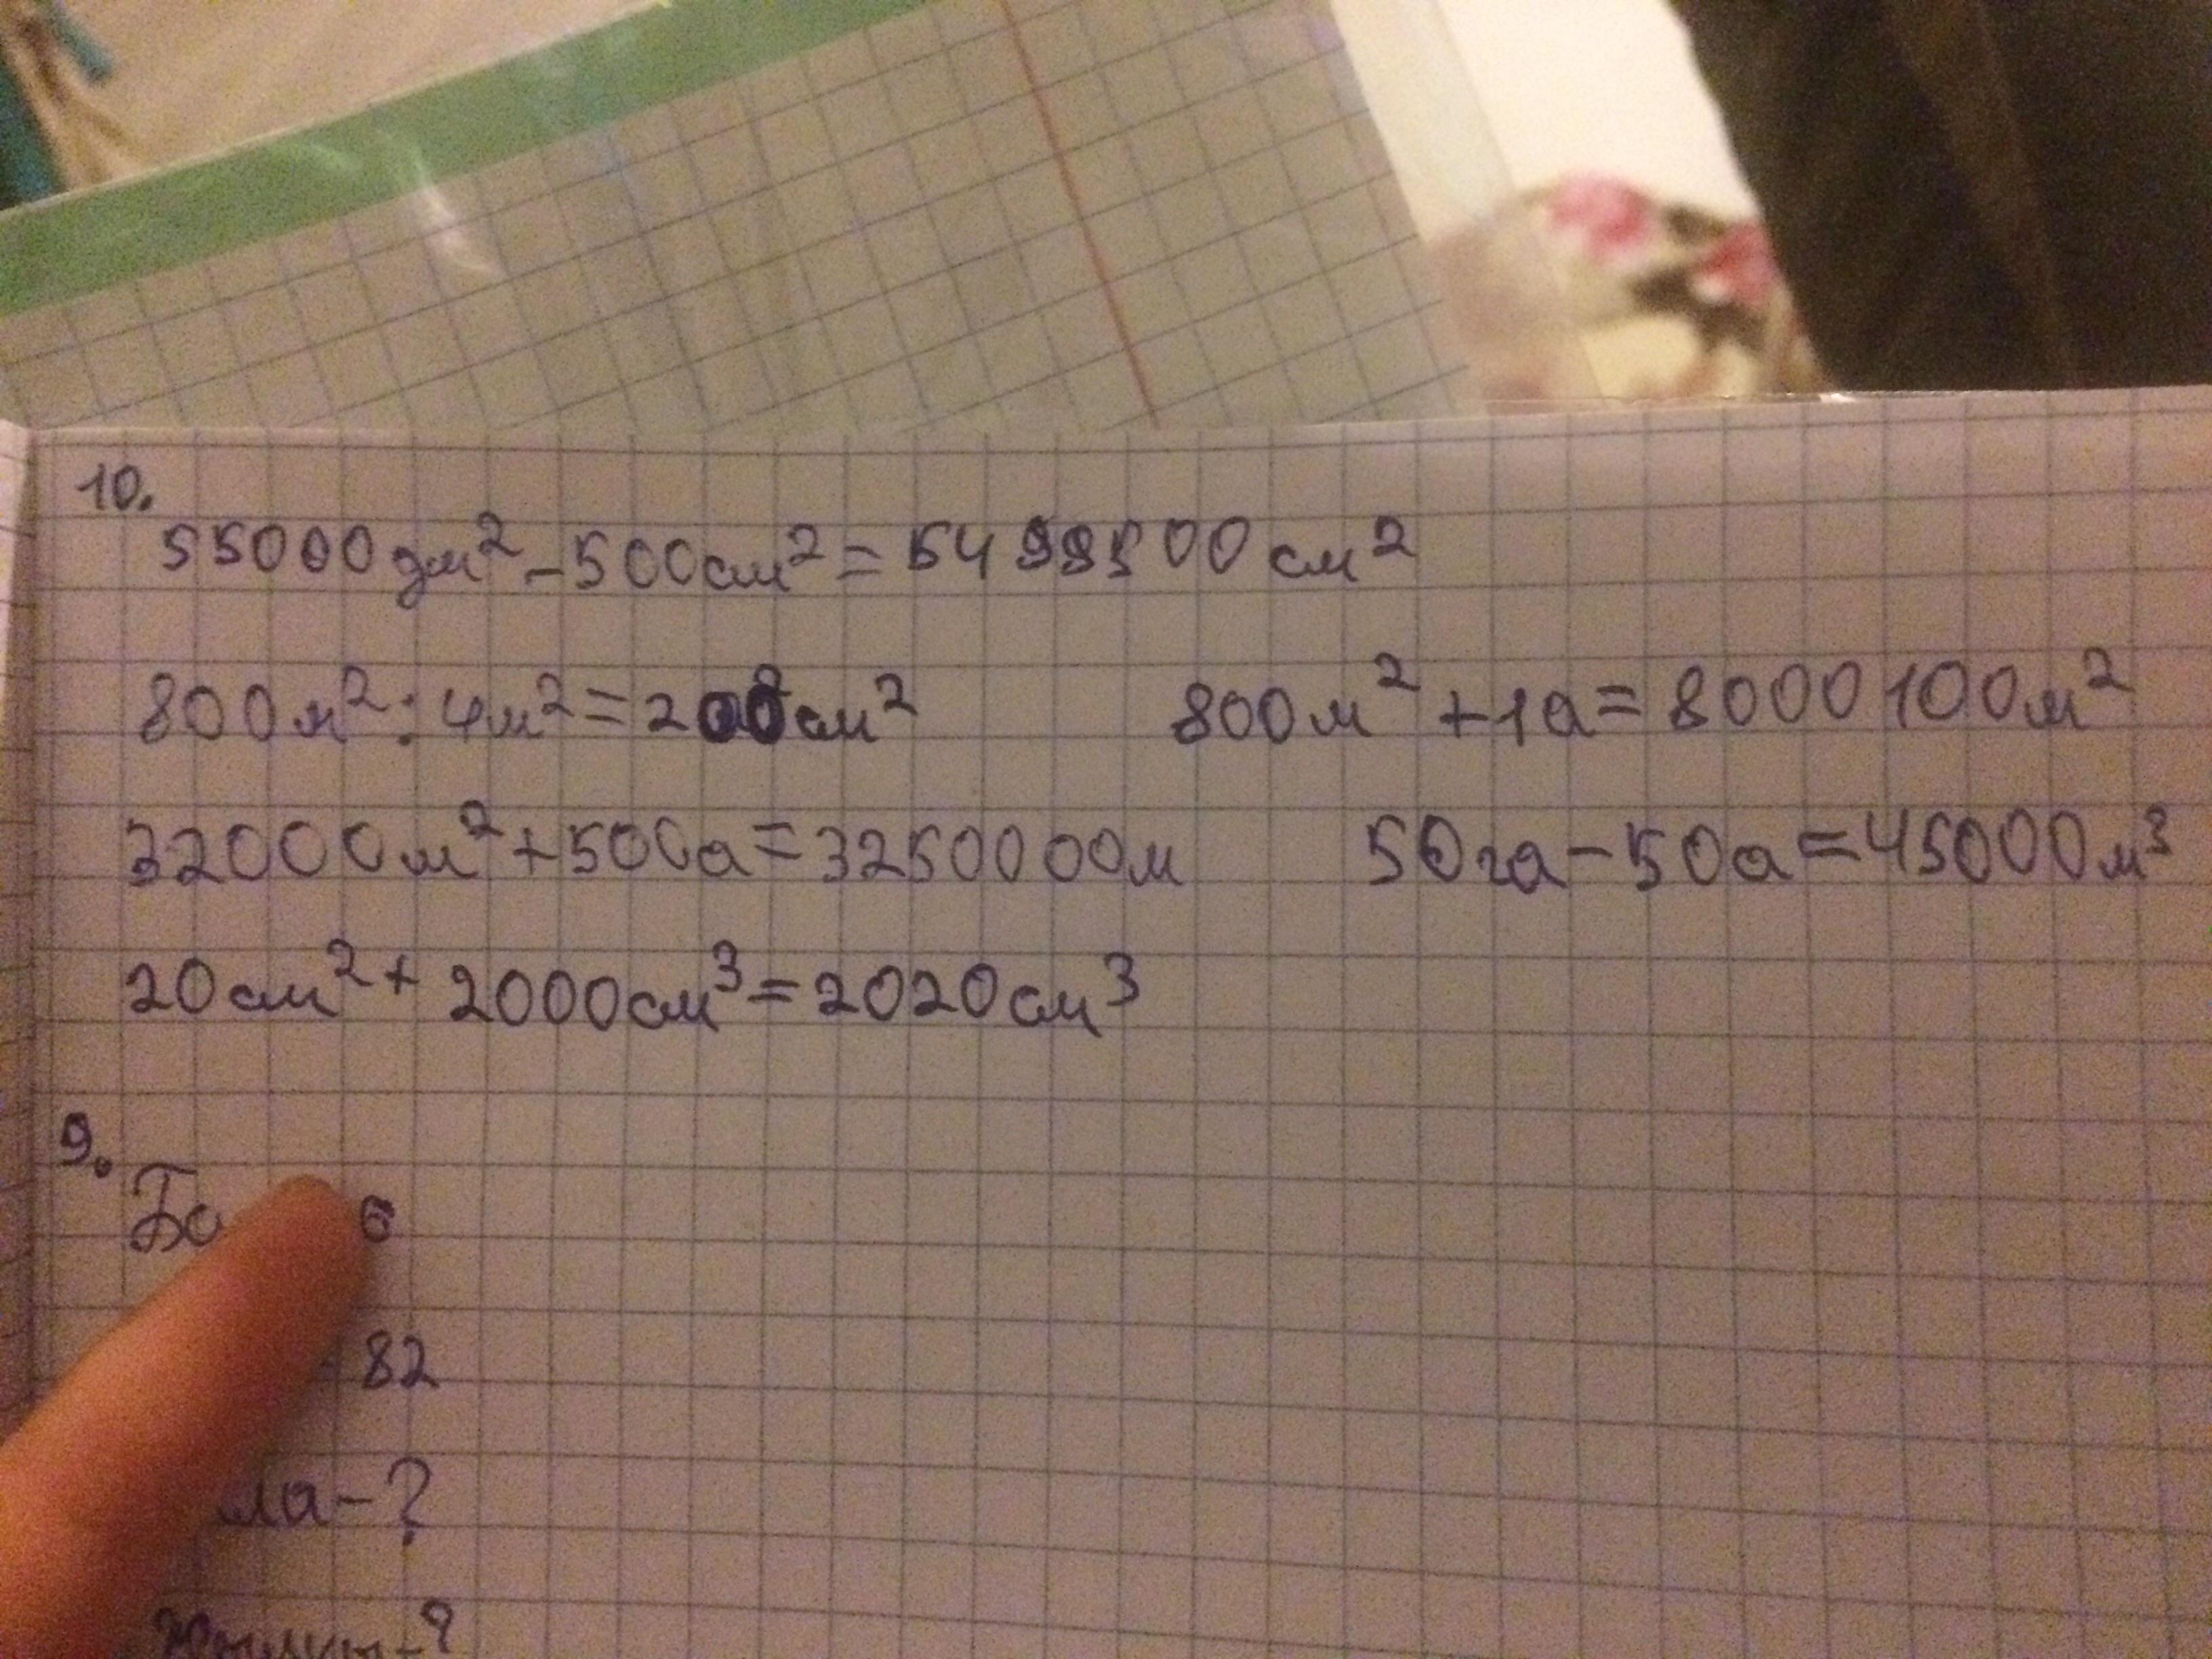 10.
55000 дм² - 500 см² = 5499500 см²
800 м² : 4 м² = 200 см² 800 м² + 1 а = 8000100 м²
32000 м² + 500 а = 3250000 м 50 га - 50 а = 45000 м³
20 см² + 2000 см³ = 2020 см³
9.
- 82
- ?
- ?